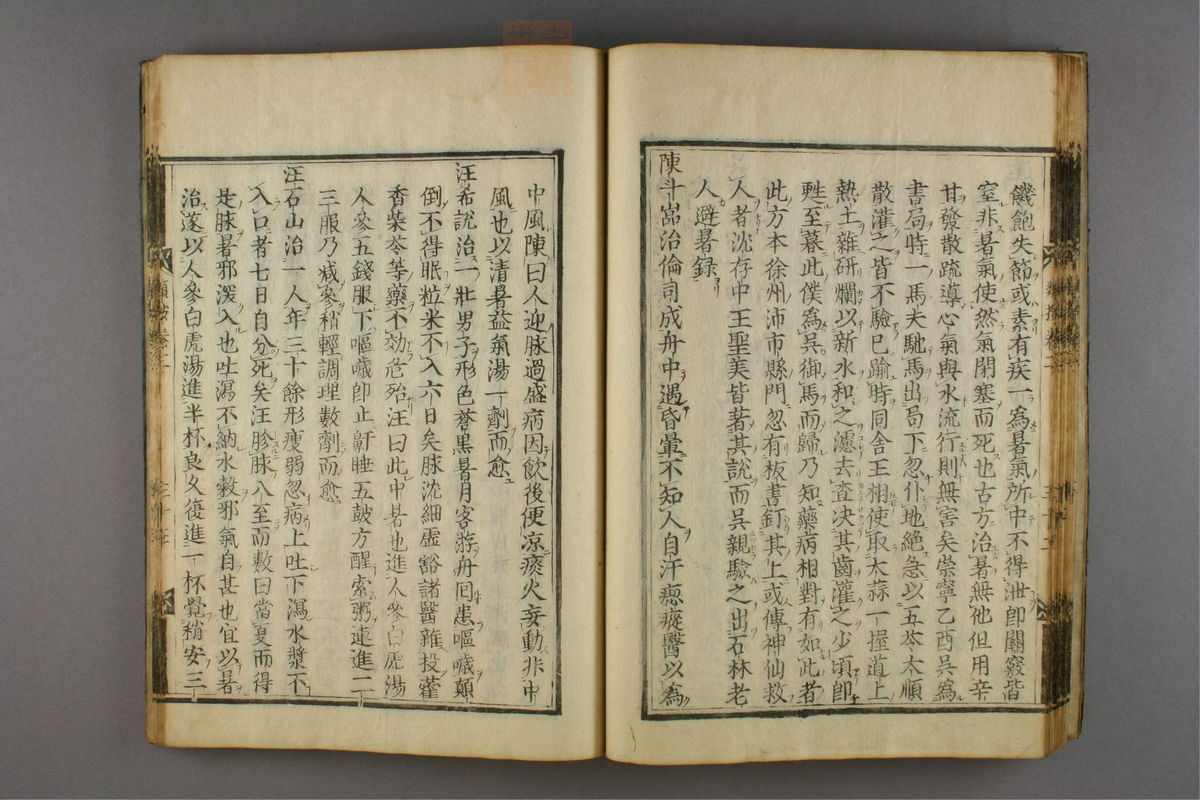 饑飽失節或素有疾一為暑氣所中不得泄卽關竅皆
窒非暑氣使然氣閉塞而死也古方治暑無他但用辛
甘發散疏導心氣與水流行則無害矣崇寧乙酉吳為
書局時一馬夫馳馬出局下忽仆地絕急以五苓大順
散灌之皆不驗已踰時同舍王相使取大蒜一握道上
熱土雜研爛以新水和之濾去査决其齒灌之少頃卽
甦至暮此僕為吳御馬而歸乃知藥病相對有如此者
此方本徐州沛市縣門忽有板書釘其上或傳神仙救
人者沈存中王聖美皆著其說而吳親驗之出石林老
人避暑録
陳斗嵓治倫司成舟中遇昏暈不知人自汗瘛瘲醫以為
中風陳曰人迎脉過盛病因飲後便凉痰火妄動非中
風也以清暑益氣湯一劑而愈
汪希說治一壯男子形色蒼黑暑月客游舟囘患嘔噦顛
倒不得眠粒米不入六日矣脉沈細虛豁諸醫雜投藿
香柴苓等藥不効危殆汪曰此中暑也進人參白虎湯
人參五錢服下嘔噦卽止鼾睡五鼓方醒索粥連進二
三服乃减參稍輕調理數劑而愈
汪石山治一人年三十餘形瘦弱忽病上吐下瀉水漿不
入口者七日自分死矣汪胗脉八至而數曰當夏而得
是脉暑邪深入也吐瀉不納水穀邪氣自甚也宜以暑
治遂以人參白虎湯進半杯良久復進一杯覺稍安三